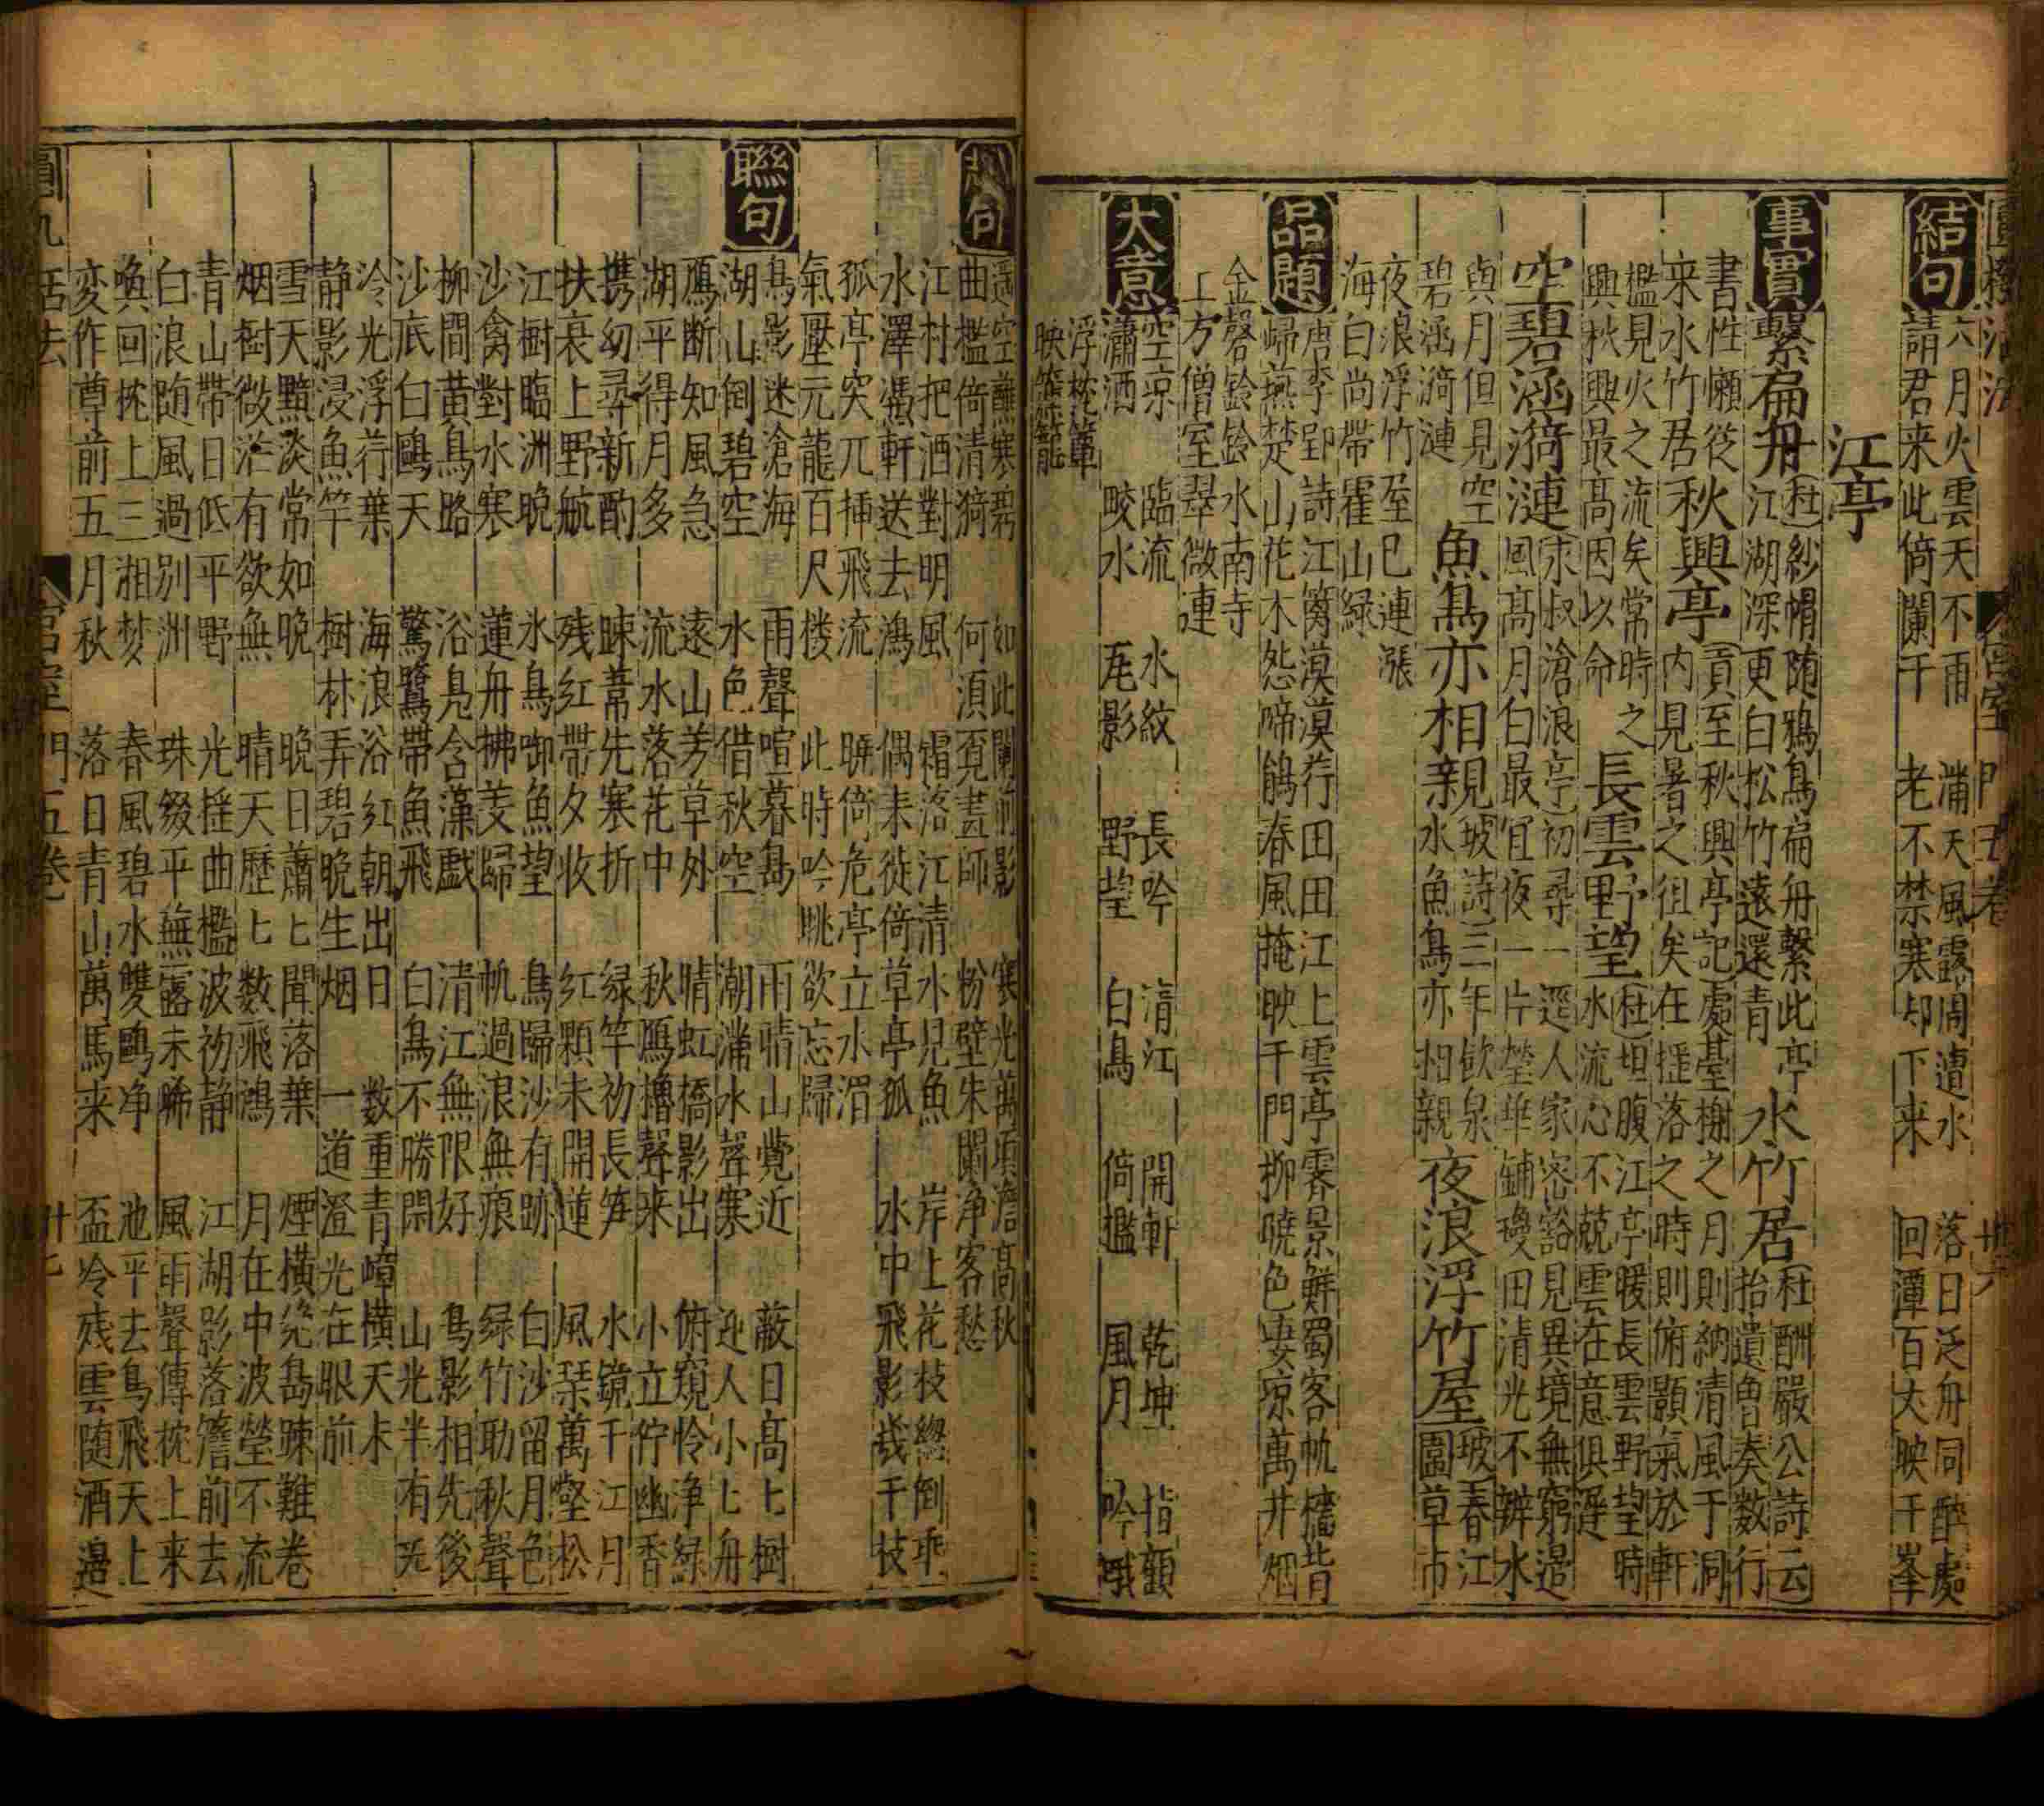 圓機活法 宮室門五卷 卅六
結句 六月火雲天不雨 滿天風露周遭水 落日泛舟同醉處
請君来此倚闌干 老不禁寒却下来 回潭百丈映千峯
江亭
事實 繫扁舟 杜紗帽随鷗鳥扁舟繫此亭
江湖深更白松竹遠還青
水竹居 杜酬嚴公詩云
拾遺曾奏数行
書性懶従
来水竹居
秋興亭 賈至秋興亭記處䑓榭之月則納清風于洞
内見暑之徂矣在揺落之時則俯顥氣於軒
檻見火之流矣常時之
興秋興最髙因以命
長雲野望 杜坦腹江亭暖長雲野望時
水流心不兢雲在意俱遅
空碧涵漪漣 永叔滄浪亭初尋一逕人家密豁見異境無窮邉
風髙月白最宜夜一片瑩華鋪瓊田清光不辨水
與月但見空
碧涵漪漣
魚鳥亦相親 坡詩三年飲泉
水魚鳥亦相親
夜浪浮竹屋 坡春江
園草市
夜浪浮竹至巳連漲
海白尚帶霍山緑
品題 唐李郢詩江篱漠漠荇田田江上雲亭霽景鮮蜀客帆檣背
歸燕楚山花木怨啼鵑春風掩映千門柳暁色凄凉萬井烟
金磬鈴鈴水南寺
上方僧室翠微連
大意 空凉 臨流 水紋 長吟 清江 開軒 乾坤 指顧
瀟洒 畯水 尾影 野望 白鳥 倚檻 風月 吟哦
浮枕簟
映簾籠
起句 遥空蘸寒碧 如此闌前影 寒光萬頃澹髙秋
曲檻倚清漪 何須覔畫師 粉壁朱闌净客愁
江村把酒對明風 霜落江清水見魚 岸上花枝緫倒垂
水澤憑軒送去鴻 偶来徙倚草亭孤 水中飛影幾千枝
孤亭突兀插飛流 暁倚危亭立水湄
氣壓元龍百尺楼 此時吟眺欲忘歸
聯句 鳥影迷滄海 雨聲喧暮島 雨晴山覺近 蔽日髙七樹
湖山倒碧空 水色借秋空 潮滿水聲寒 迎人小七舟
鴈断知風急 遠山芳草外 晴虹橋影出 俯窺怜净緑
湖平得月多 流水落花中 秋鴈櫓聲来 小立佇幽香
携幼尋新酌 疎葦先寒折 緑竿初長笋 水鏡千江月
扶衰上野航 残红帶夕收 红顆未開蓮 風琹萬壑松
江樹臨洲晩 氷鳥啣魚望 鳥歸沙有跡 白沙留月色
沙禽對水寒 蓮舟拂芰歸 帆過浪無痕 緑竹助秋聲
柳間黄鳥路 浴鳧含藻戯 清江無限好 鳥影相先後
沙底白鷗天 驚鷺帶魚飛 白鳥不勝閑 山光半有无
冷光浮荇葉 海浪浴红朝出日 数重青嶂横天末
静影浸魚竿 樹林弄碧晩生烟 一道澄光在眼前
雪天黯淡常如晩 晩日蕭七聞落葉 煙横絶島踈難卷
烟樹微茫有欲無 晴天歷七数飛鴻 月在中波瑩不流
青山帶日低平野 光揺曲檻波初静 江湖影落簷前去
白浪随風過别洲 珠綴平蕪露未晞 風雨聲傳枕上来
喚回枕上三湘夢 春風碧水雙鷗净 池平去鳥飛天上
変作尊前五月秋 落日青山萬馬来 盃冷残雲随酒邉
圓機活法 宮室門五卷 卅七